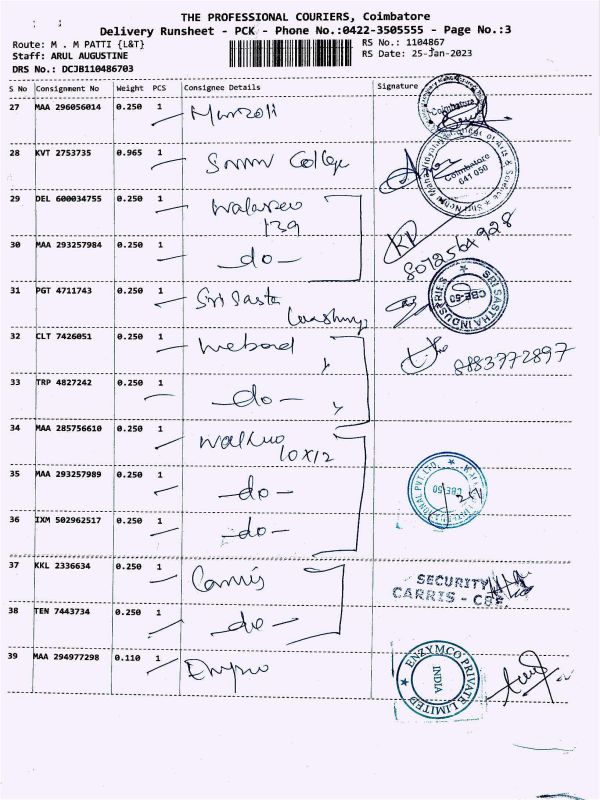 THE PROFESSIONAL COURIERS, Coimbatore
Delivery Runsheet - PCK - Phone No.:0422-3505555 - Page No.:3
Route: M . M PATTI {L&T}
RS No.: 1104867
Staff: ARUL AUGUSTINE
RS Date: 25-Jan-2023
DRS No.: DCJB110486703
S No Consignment No Weight PCS Consignee Details Signature
27 MAA 296056014 0.250 1
Coimbatore
28 KVT 2753735 0.965 1 College
Coimbatore
641 050
29 DEL 600034755 0.250 1
139
30 MAA 293257984 0.250 1 -do-
8072564928
31 PGT 4711743 0.250 1 Sri Sasta
SRI SASTHA INDUSTRIES
CBE-50
32 CLT 7426051 0.250 1
8883772897
33 TRP 4827242 0.250 1 -do-
34 MAA 285756610 0.250 1
10x12
35 MAA 293257989 0.250 1 -do-
CBE-50
36 IXM 502962517 0.250 1 -do-
37 KKL 2336634 0.250 1 Carris
SECURITY
CARRIS - CBE
38 TEN 7443734 0.250 1 -do-
39 MAA 294977298 0.110 1
ENZYMCO PRIVATE LIMITED
INDIA